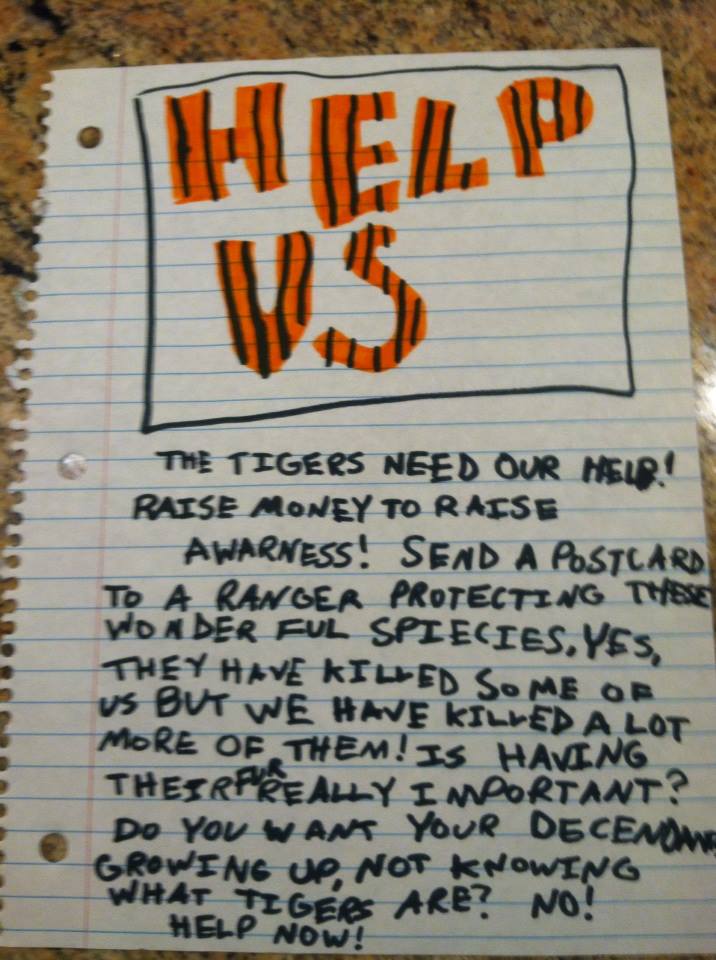 HELP
US
THE TIGERS NEED OUR HELP!
RAISE MONEY TO RAISE
AWARNESS! SEND A POSTCARD
TO A RANGER PROTECTING THESE
WONDERFUL SPIECIES. YES,
THEY HAVE KILLED SOME OF
US BUT WE HAVE KILLED A LOT
MORE OF THEM! IS HAVING
THEIR FUR REALLY IMPORTANT?
DO YOU WANT YOUR
GROWING UP, NOT KNOWING
WHAT TIGERS ARE? NO!
HELP NOW!